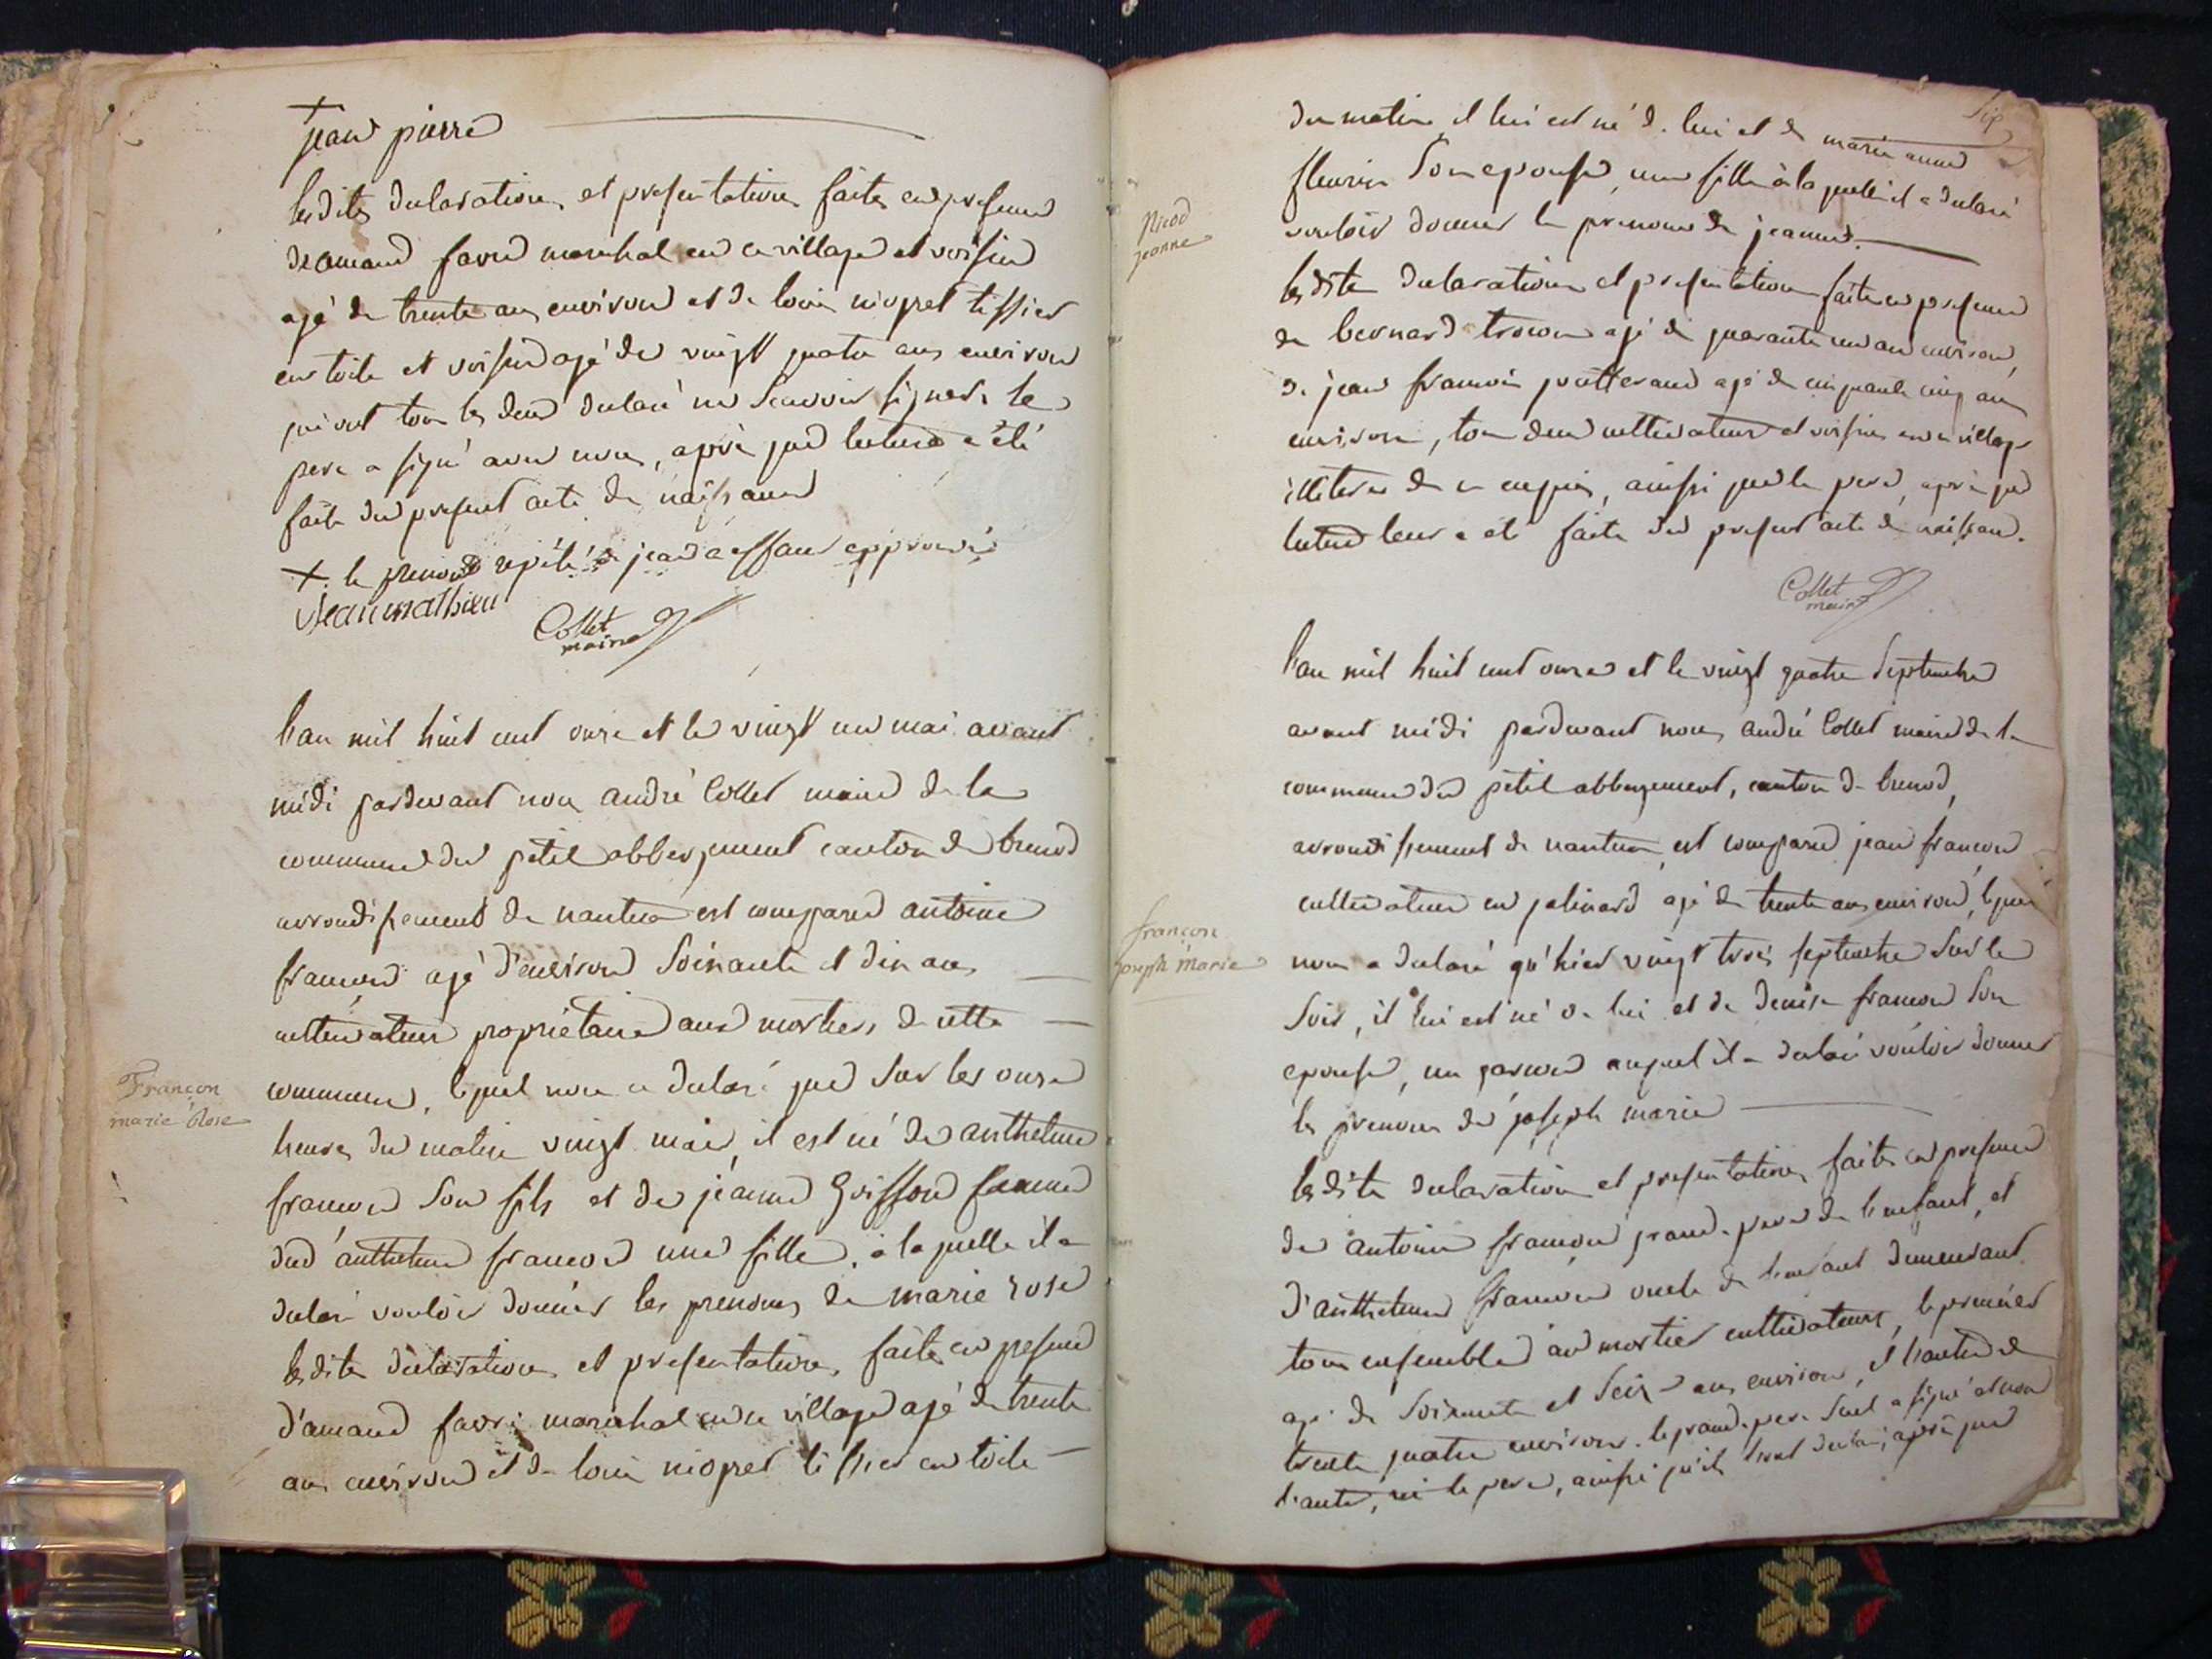 +
jean pierre
lesdites declaration et presentation faites en presence
d'amand favre marechal en ce village et voisin
agé de trente ans environ et de louis niogret tissier
en toile et voisin agé de vingt quatre ans environ
qui ont tous les deux declaré ne scavoir signer, le
pere a signé avec nous, après que lecture a été
faite du present acte de naissance
+ le prenom repété de jean a effacer approuvé
Jean mathieu
Collet
maire
l'an mil huit cent onze et le vingt un mai avant
midi pardevant nous andré Collet maire de la
commune du petit abbergement canton de brenod
arrondissement de nantua est comparu antoine
françon agé d'environ soixante et dix ans
cultivateur propriétaire aux mortiers de cette
commune, lequel nous a declaré que sur les onze
Françon
marie Rose
heures du matin vingt mai, il est né de anthelme
françon son fils et de jeanne Griffon femme
dud. anthelme françon une fille, à laquelle il a
declaré vouloir donner les prenoms de marie rose
lesdites declaration et presentation, faites en presence
d'amand favre marechal en ce village agé de trente
ans environ et de louis niogret tissier en toile
six
du matin il lui est né de lui et de marie anne
fleurin son epouse, une fille à laquelle il a declaré
Nicod
jeanne
vouloir donner le prenom de jeanne.
lesdites declaration et presentation faites en presence
de bernard trocon agé de quarante un an environ
de jean françois agé de cinquante cinq ans
environ, tous deux cultivateurs et voisins en ce village
illiteres de ce enquis, ainsi que le pere, après que
lecture leur a eté faite du present acte de naissance.
Collet
maire
l'an mil huit cent onze et le vingt quatre septembre
avant midi pardevant nous andré Collet maire de la
commune du petit abbergement, canton de brenod,
arrondissement de nantua, est comparu jean françon
cultivateur en jalinard agé de trente ans environ, lequel
françon
joseph Marie
nous a declaré qu'hier vingt trois septembre sur le
soir, il lui est né de lui et de denise françon son
epouse, un garçon auquel il a declaré vouloir donner
les prenoms de joseph marie
lesdites declaration et presentation faites en presence
de antoine françon grand-pere de l'enfant, et
d'anthelme françon oncle de l'enfant demeurant
tous ensemble au mortier cultivateurs, le premier
agé de soixante et seize ans environ, et l'autre de
trente quatre environ. le grand-pere seul a signé et non
l'autre, ni le pere, ainsi qu'ils l'ont declaré, après que